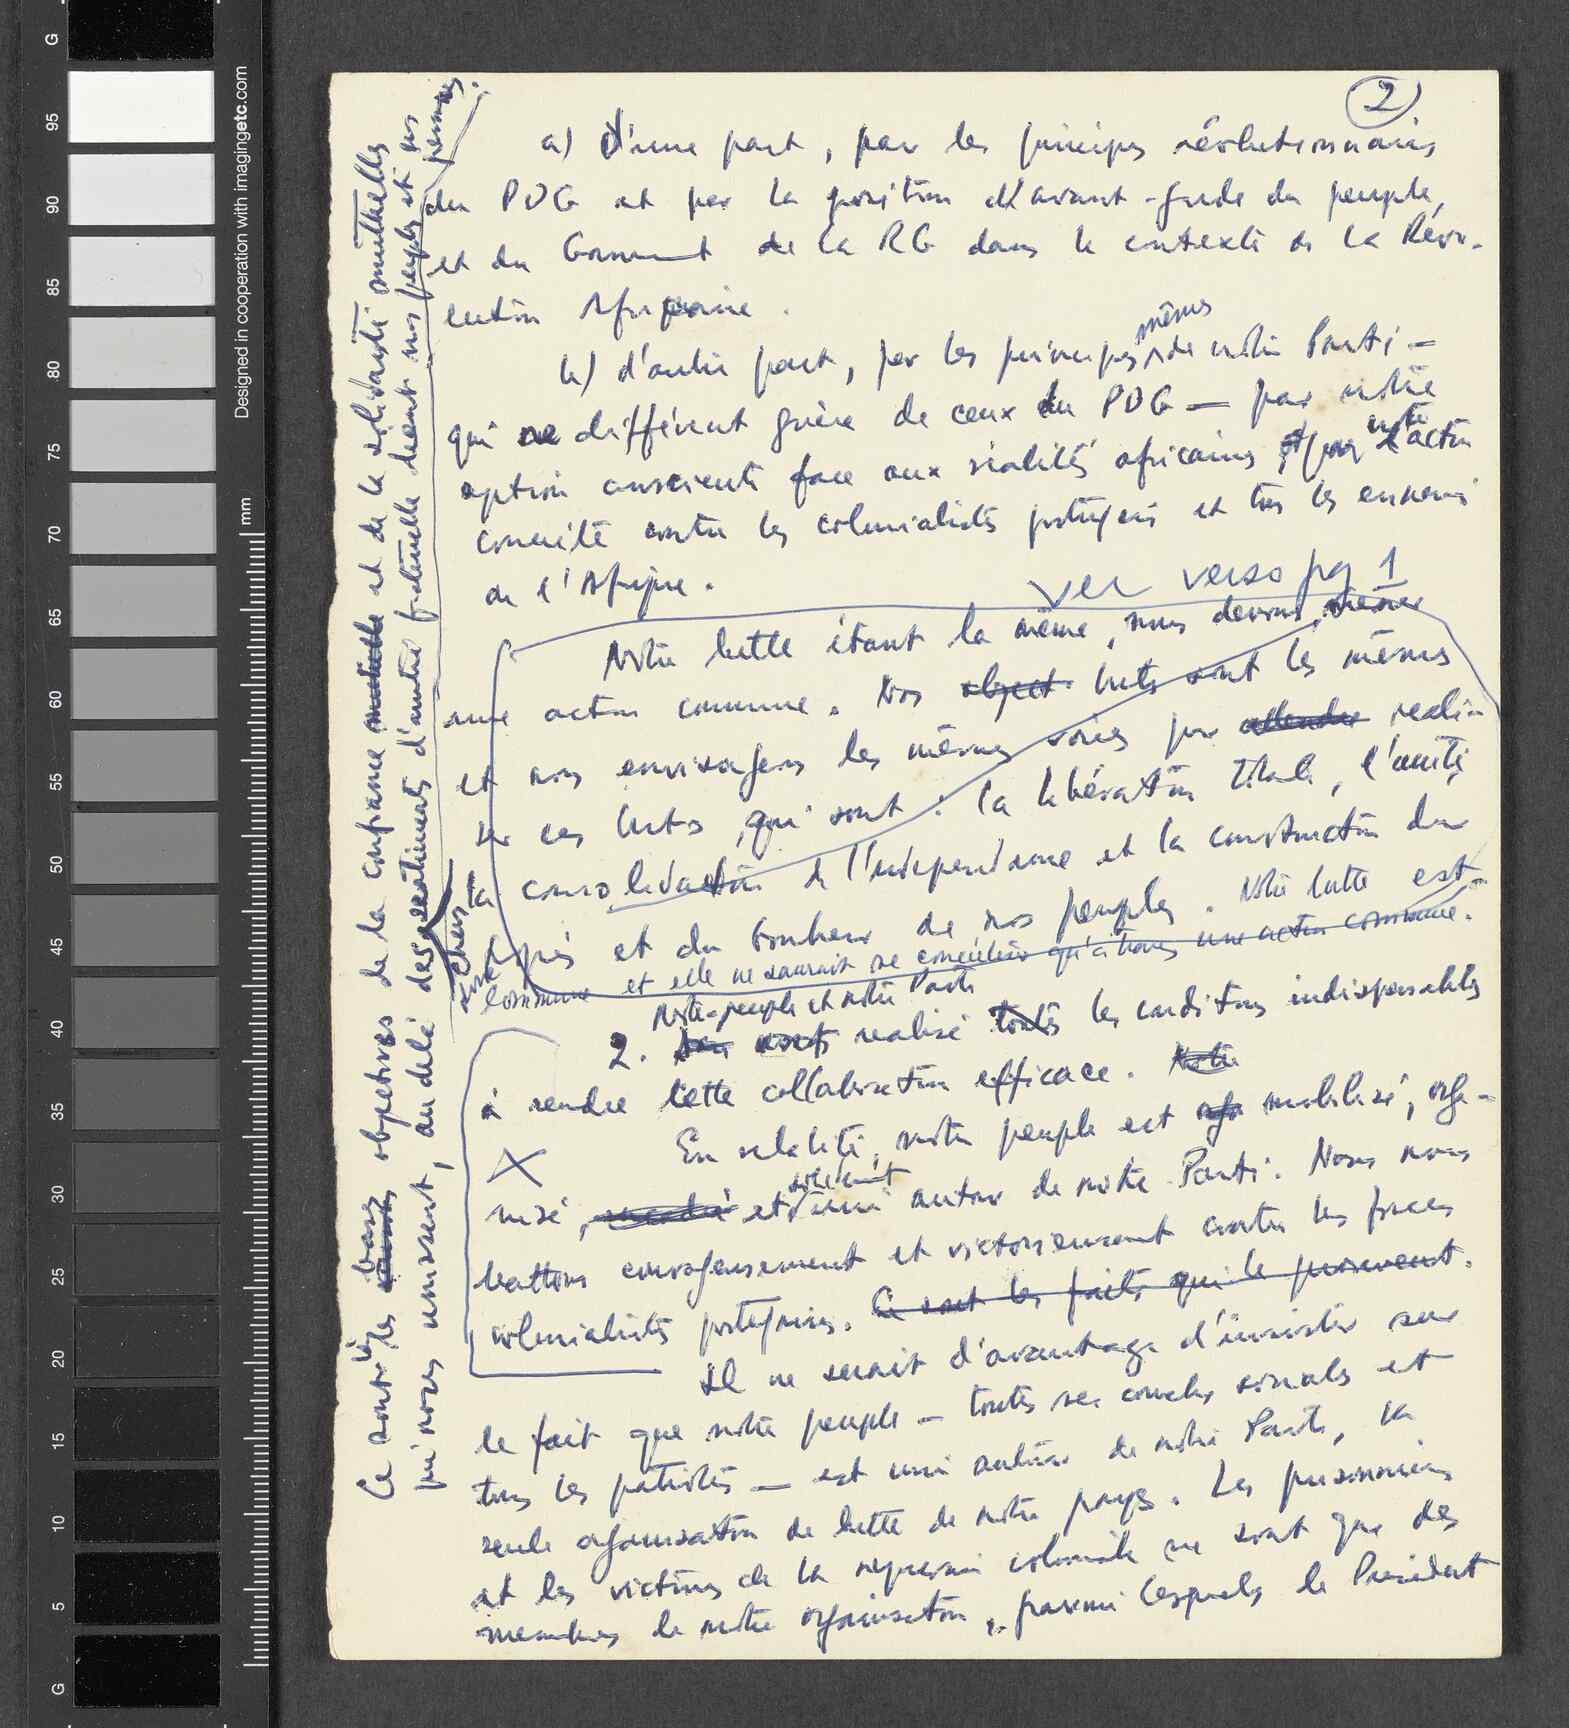 2
a) D'une part, par les principes révolutionnaires
du PDG et par la position d'avant-garde du peuple,
et du Gouvernement de la RG dans le contexte de la Révo-
lution Africaine.
b) d'autre part, par les principes mêmes de notre Parti —
qui ne diffèrent guère de ceux du PDG — par notre
option consciente face aux réalités africaines, et par notre action
concrète contre les colonialistes portugais et tous les ennemis
de l'Afrique.
ver verso pg 1
Notre lutte étant la même, nous devons mener
une action commune. Nos object. buts sont les mêmes
et nous envisageons les mêmes voies pour attendre reali-
ser ces buts, qui sont: la libération totale, l'unité,
la consolidation de l'independance et la construction du
progrès et du bonheur de nos peuples. Notre lutte est
commune et elle ne saurait se concrétiser qu'à travers une action commune.
Notre peuple et notre Parti
2. realisé toutes les conditions indispensables
à rendre cette collaboration efficace. Notre
X
En réalité, notre peuple est mobilisé, orga-
nisé, et solidement uni autour de notre Parti. Nous nous
battons courageusement et victorieusement contre les forces
colonialistes portugaises. Ce sont les faits qui le prouvent.
Il ne serait d'avantage d'insister sur
le fait que notre peuple — toutes ses couches sociales et
tous les patriotes — est uni autour de notre Parti, la
seule organisation de lutte de notre pays. Les prisonniers
et les victimes de la repression coloniale ne sont que des
membres de notre organisation, parmi lesquels le President
Ce sont là les bases objectives de la confiance mutuelle et de la solidarité mutuelles
qui nous unissent, au delà des sentiments d'amitié fraternelle liant nos peuples et nos
sont chers
Designed in cooperation with imagingetc.com
mm
G
95
90
85
80
75
70
65
60
55
50
45
40
35
30
25
20
15
10
5
G